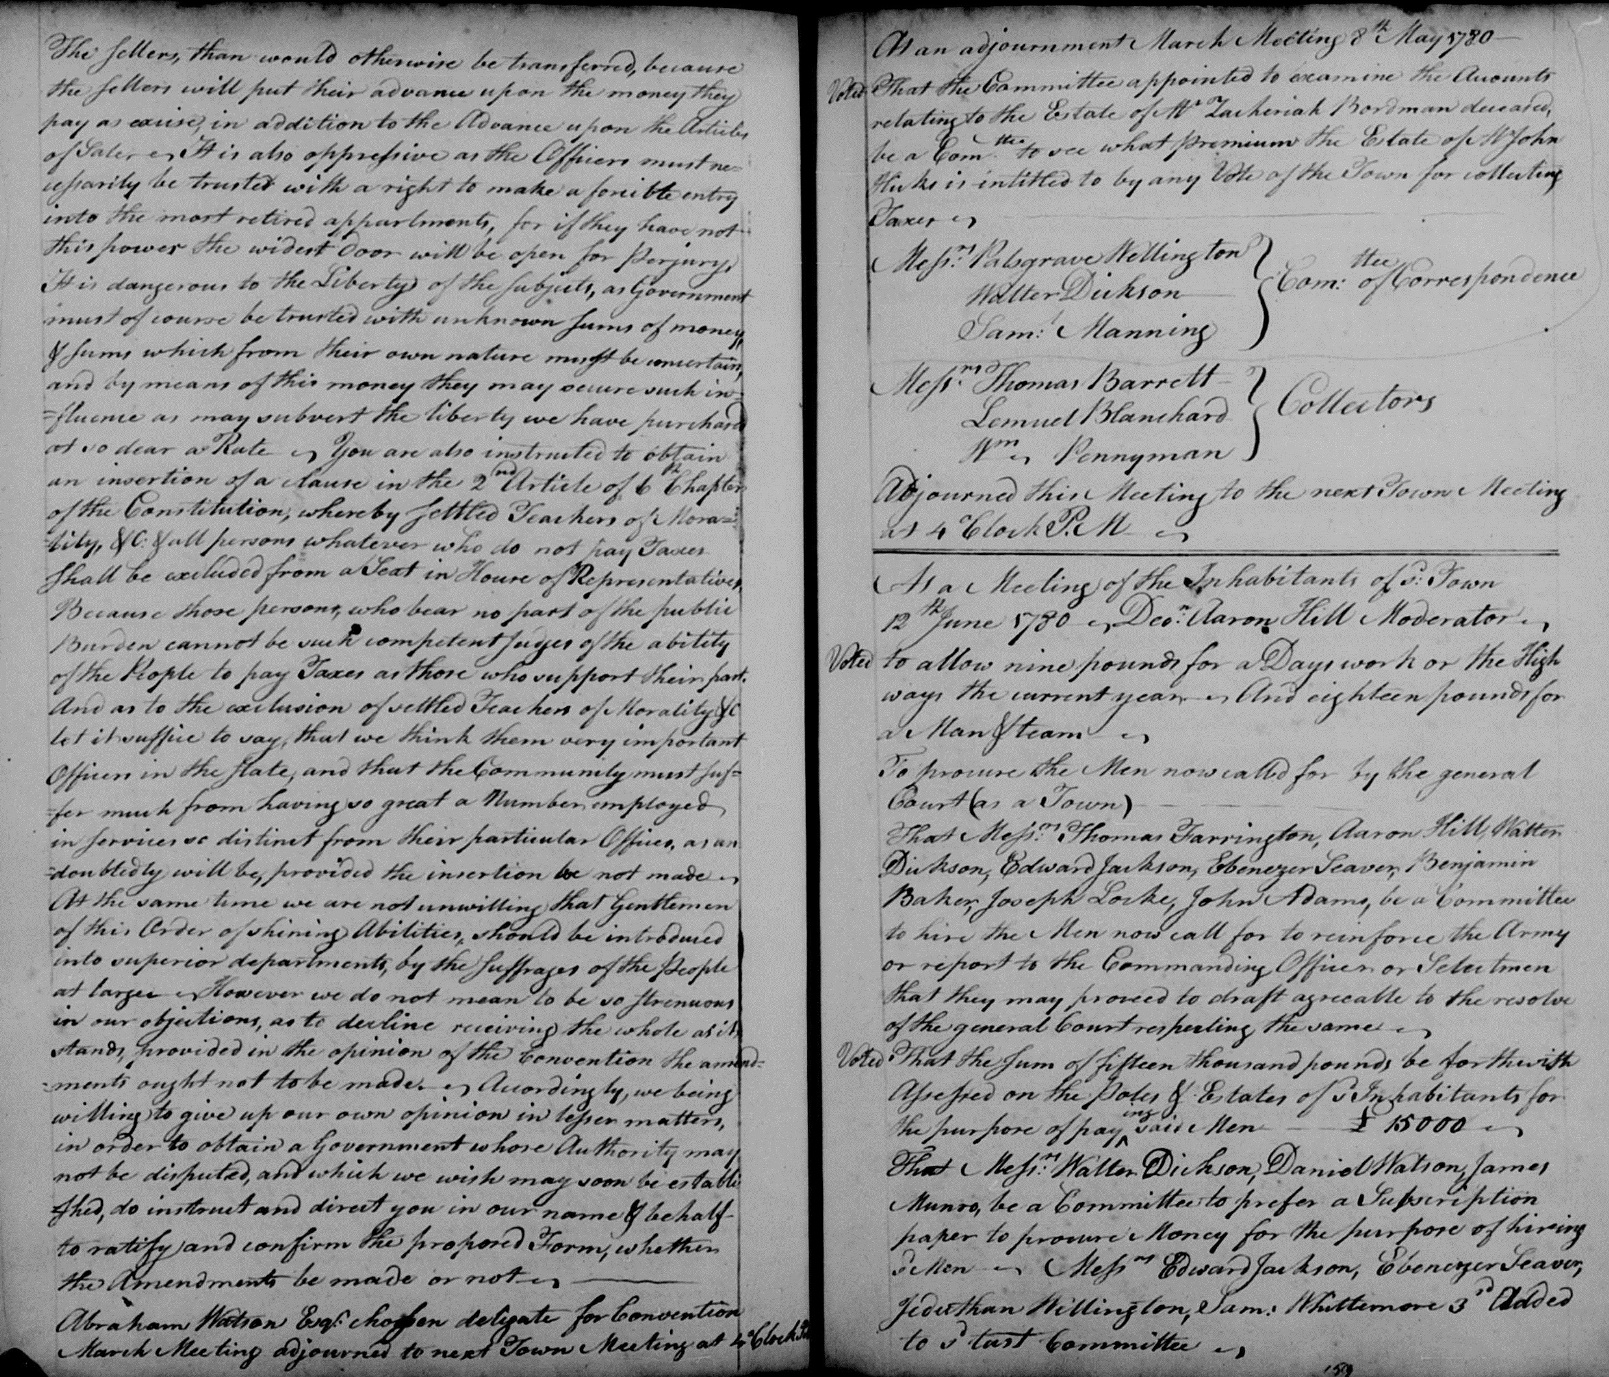 The sellers, than would otherwise be transferred, because
the sellers will put their advance upon the money they
pay as excise, in addition to the Advance upon the Articles
of Sale. It is also oppressive as the Officers must ne=
cessarily be trusted with a right to make a forcible entry
into the most retired appartments, for if they have not
this power the widest Door will be open for Perjury,
It is dangerous to the Liberty of the subjects, as Government
must of course be trusted with unknown sums of money,
& sums which from their own nature must be uncertain,
and by means of this money they may secure such in=
=fluence as may subvert the liberty we have purchased
at so dear a Rate You are also instructed to obtain
an insertion of a clause in the 2nd Article of 6th Chapter
of the Constitution, whereby settled Teachers of Mora=
=lity, &C. & all persons whatever who do not pay Taxes
shall be excluded from a Seat in House of Representatives,
Because those persons, who bear no part of the public
Burden cannot be such competent Judges of the ability
of the People to pay Taxes as those who support their part.
And as to the exclusion of settled Teachers of Morality &C
let it suffice to say, that we think them very important
Officers in the state, and that the Community must suf=
=fer much from having so great a Number employed
in services so distinct from their particular Offices, as un
=doubtedly will be, provided the insertion be not made
At the same time we are not unwilling that Gentlemen
of this Order of shining Abilities, should be introduced
into superior departments, by the suffrages of the People
at large However we do not mean to be so strenuous
in our objections, as to decline receiving the whole as it
stands, provided in the opinion of the Convention the amend=
=ments ought not to be made. Accordingly, we being
willing to give up our own opinion in lesser matters,
in order to obtain a Government whose Authority may
not be disputed, and which we wish may soon be establi
=shed, do instruct and direct you in our name & behalf
to ratify and confirm the proposed Form, whether
the Amendments be made or not
Abraham Watson Esqr. chossen deligate for Convention
March Meeting adjourned to next Town Meeting at 4 oClock PM
At an adjournment March Meeting 8th May 1780
Voted That the Committee appointed to examine the Accounts
relating to the Estate of Mr. Zacheriah Bordman deceased,
be a Com:ttee to see what premium the Estate of Mr John
Hicks is intitled to by any Vote of the Town for collecting
Taxes
Messrs. Palsgrave Wellington
Walter Dickson
Saml. Manning
Com:ttee of Correspondence
Messrs. Thomas Barrett
Lemuel Blanchard
Wm Pennyman
Collectors
Adjourned this Meeting to the next Town Meeting
at 4 oClock P.M
At a Meeting of the Inhabitants of sd: Town
12th June 1780 Deon. Aaron Hill Moderator
Voted to allow nine pounds for a Days work or the High
ways the current year And eighteen pounds for
a Man & team
To procure the Men now called for by the general
Court (as a Town)
That Messrs. Thomas Farrington, Aaron Hill, Walter
Dickson, Edward Jackson, Ebenezer Seaver, Benjamin
Baker, Joseph Locke, John Adams, be a Committee
to hire the Men now call for to reinforce the Army
or report to the Commanding Officer or Selectmen
that they may proceed to draft agreeable to the resolve
of the general Court respecting the same
Voted That the Sum of fifteen thousand pounds be forthwith
Assessed on the Poles & Estates of sd Inhabitants for
the purpose of pay^ing said Men £ 15000
That Messrs. Walter Dickson, Daniel Watson, James
Munro, be a Committee to prefer a Subscription
paper to procure Money for the purpose of hireing
sd Men Messrs Edward Jackson, Ebenezer Seaver,
Jeduthan Willington, Sam: Whittemore 3rd Added
to sd last Committee